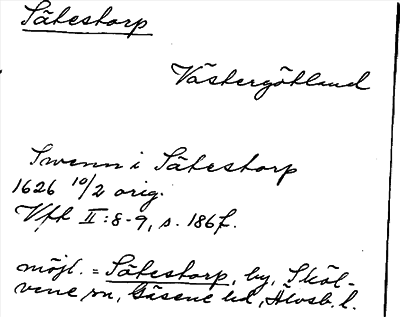 Sätestorp
Västergötland
Swenn i Sätestorp
1626 10/2 orig.
Vft II:8-9, s. 186f.
möjl. = Sätestorp, by, Sköl-
vene sn, Gäsene hd, Älvsb. l.